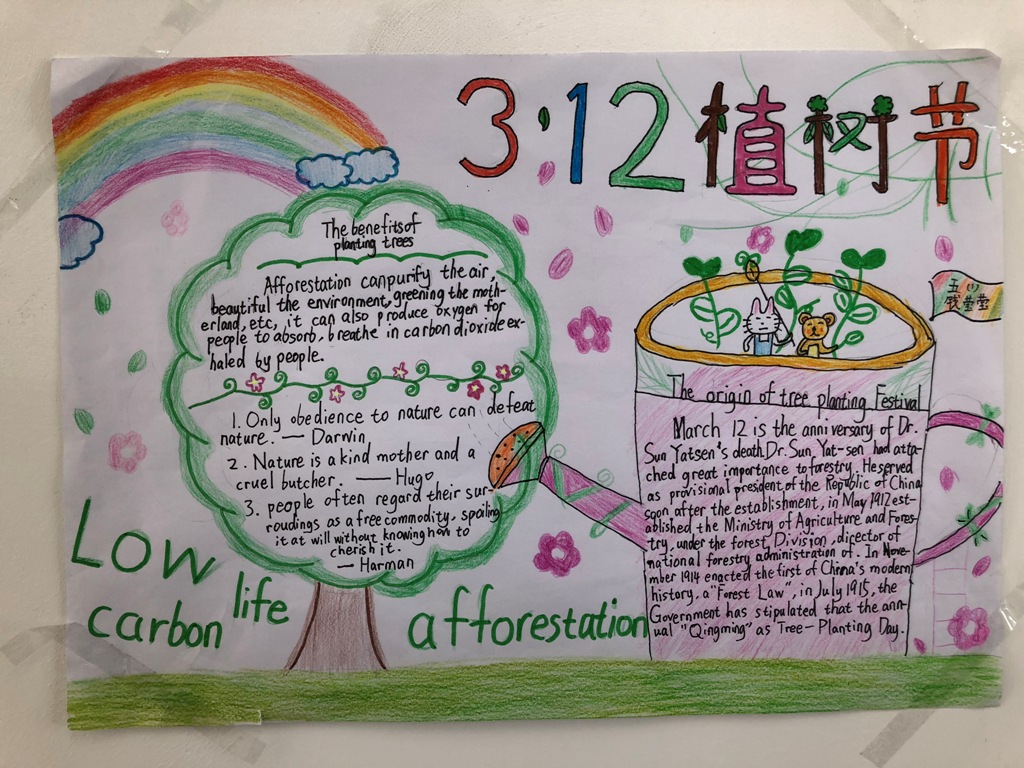 3·12植树节
The benefits of
planting trees
Afforestation can purify the air,
beautiful the environment, greening the moth-
erland, etc, it can also produce oxygen for
people to absorb, breathe in carbon dioxide ex-
haled by people.
1. Only obedience to nature can defeat
nature. — Darwin
2. Nature is a kind mother and a
cruel butcher. — Hugo
3. people often regard their sur-
roudings as a free commodity, spoiling
it at will without knowing how to
cherish it.
— Harman
Low
carbon life
afforestation
五(1)
The origin of tree planting Festival
March 12 is the anniversary of Dr.
Sun Yatsen's death, Dr. Sun Yat-sen had atta-
ched great importance to forestry. He served
as provisional president of the Republic of China
soon after the establishment, in May 1912 est-
ablished the Ministry of Agriculture and Fores-
try, under the forest Division, director of
national forestry administration of. In Nove-
mber 1914 enacted the first of China's modern
history, a "Forest Law", in July 1915, the
Government has stipulated that the ann-
ual "Qingming" as Tree-Planting Day.